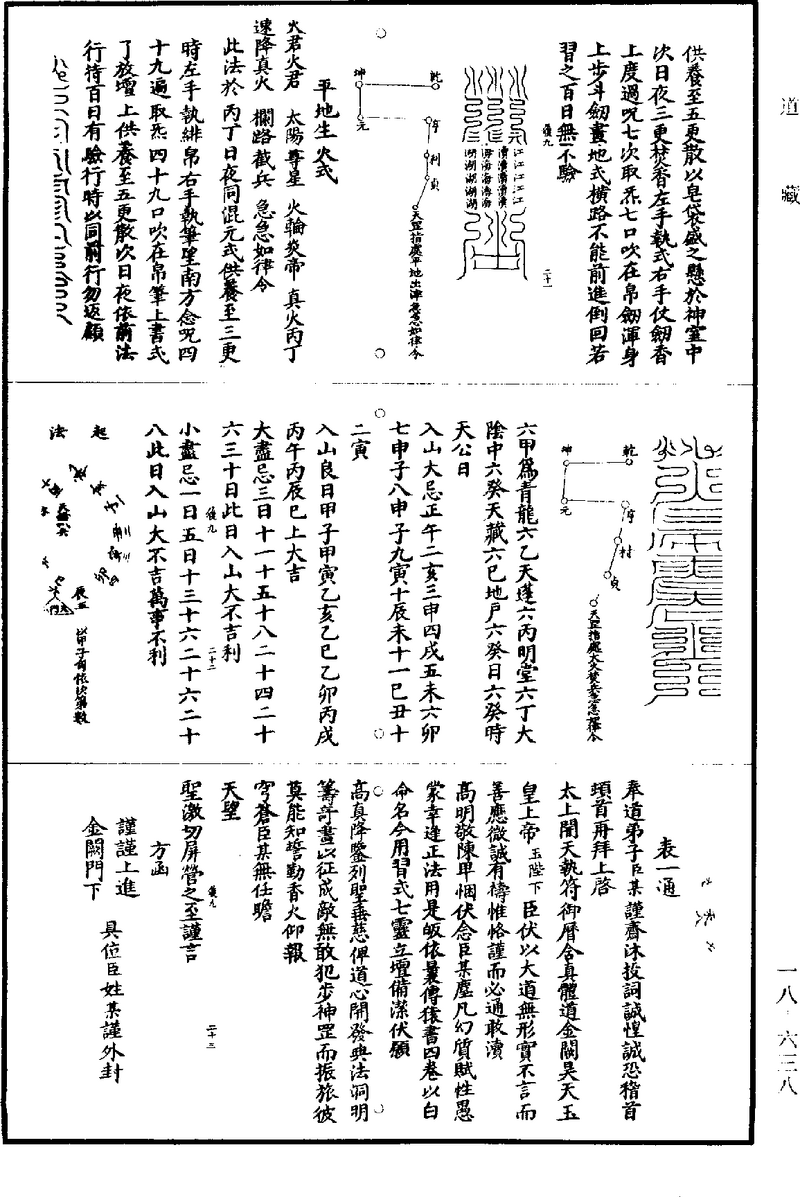 道藏
一八·六三八
供養至五更散以皂袋盛之懸於神靈中
次日夜三更焚香左手執式右手仗劒香
上度過咒七次取炁七口吹在帛劒渾身
上步斗劒畫地式橫路不能前進倒回若
習之百日無不驗
後九
江江江江江
濟濟濟濟濟
海海海海海
湖湖湖湖湖
二十一
乾
坤
元
亨
利
貞
天罡指處平地出津急急如律令
平地生火式
火君火君 太陽尊星 火輪炎帝 真火丙丁
速降真火 攔路截兵 急急如律令
此法於丙丁日夜同混元式供養至三更
時左手執緋帛右手執筆望南方念咒四
十九遍取炁四十九口吹在帛筆上書式
了放壇上供養至五更散次日夜依前法
行持百日有驗行時以同前行勿返顧
乾
坤
元
亨
利
貞
天罡指處大火焚

六甲為青龍六乙天蓬六丙明堂六丁大
陰中六癸天藏六巳地戶六癸日六癸時
天公日
入山大忌正午二亥三申四戌五未六卯
七申子八申子九寅十辰未十一巳丑十
二寅
入山良日甲子甲寅乙亥乙巳乙卯丙戌
丙午丙辰巳上大吉
大盡忌三日十一十五十八二十四二十
六三十日此日入山大不吉利
後九
二十二
小盡忌一日五日十三十六二十六二十
八此日入山大不吉萬事不利
起法
以甲子旬依次第數
表一通
奉道弟子臣某謹齋沐投詞誠惶誠恐稽首
頓首再拜上啓
太上開天執符御曆含真體道金闕昊天玉
皇上帝玉陛下臣伏以大道無形實不言而
善應微誠有禱惟恪謹而必通敢瀆
高明敬陳卑悃伏念臣某塵凡幻質賦性愚
蒙幸逢正法用是皈依曩傳猿書四卷以白
命名今用習式七靈立壇備潔伏願
高真降鑒列聖垂慈俾道心開發典法洞明
籌許畫以征成敵無敢犯步神罡而振旅彼
莫能知誓勤香火仰報
穹蒼臣某無任瞻
天望
聖激切屏營之至謹言
後九
二十三
方函
謹謹上進
金闕門下 具位臣姓某謹外封